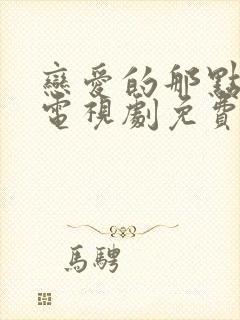 戀愛的那點
電視劇免費
馬騁